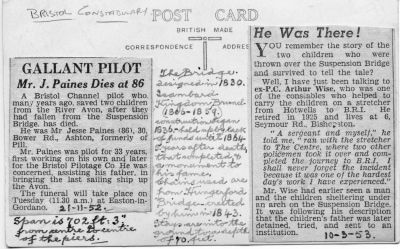 BRISTOL CONSTABULARY
POST CARD
BRITISH MADE
CORRESPONDENCE
ADDRESS
GALLANT PILOT
Mr. J. Paines Dies at 86
A Bristol Channel pilot who
many years ago, saved two children
from the River Avon, after they
had fallen from the Suspension
Bridge, has died.
He was Mr Jesse Paines (86), 30,
Bower Rd., Ashton, formerly of
Pill.
Mr. Paines was pilot for 33 years,
first working on his own and later
for the Bristol Pilotage Co He was
concerned, assisting his father, in
bringing the last sailing ship up
the Avon.
The funeral will take place on
Tuesday (11.30 a.m.) at Easton-in-
Gordano.
21-11-52.
Span is 702 ft. 3"
from centre to centre
of the piers.
The Bridge
designed in 1830.
Isambard
Kingdom Brunel
1806-1859.
begun
1836-
until 1864
years after death,
that completed as
a monument to
his fame.
Chains used are
from Hungerford
Bridge, erected
by him in 1842.
depth
of 70 feet.
He Was There!
YOU remember the story of the
two children who were
thrown over the Suspension Bridge
and survived to tell the tale?
Well, I have just been talking to
ex-P.C. Arthur Wise, who was one
of the consables who helped to
carry the children on a stretcher
from Hotwells to B.R.I. He
retired in 1925 and lives at 6,
Seymour Rd. Bishopston.
"A sergeant and myself," he
told me, "ran with the stretcher
to The Centre, where two other
policemen took it over and com-
pleted the journey to B.R.I. I
shall never forget the incident
because it was one of the hardest
day's work I have experienced."
Mr. Wise had earlier seen a man
and the children sheltering under
an arch on the Suspension Bridge.
It was following his description
that the children's father was later
detained, tried, and sent to an
institution.
10-3-53.